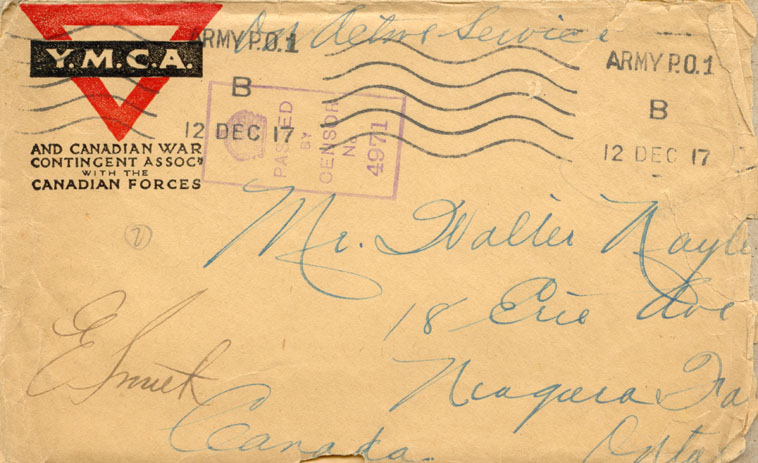 On Active Service
Y.M.C.A.
AND CANADIAN WAR
CONTINGENT ASSOCN
WITH THE
CANADIAN FORCES
ARMY P.O.1
B
12 DEC 17
ARMY P.O.1
B
12 DEC 17
PASSED
BY
CENSOR
No.
4971
Mr. Walter
18 Erie Ave
Niagara Fa
Canada Onta
2